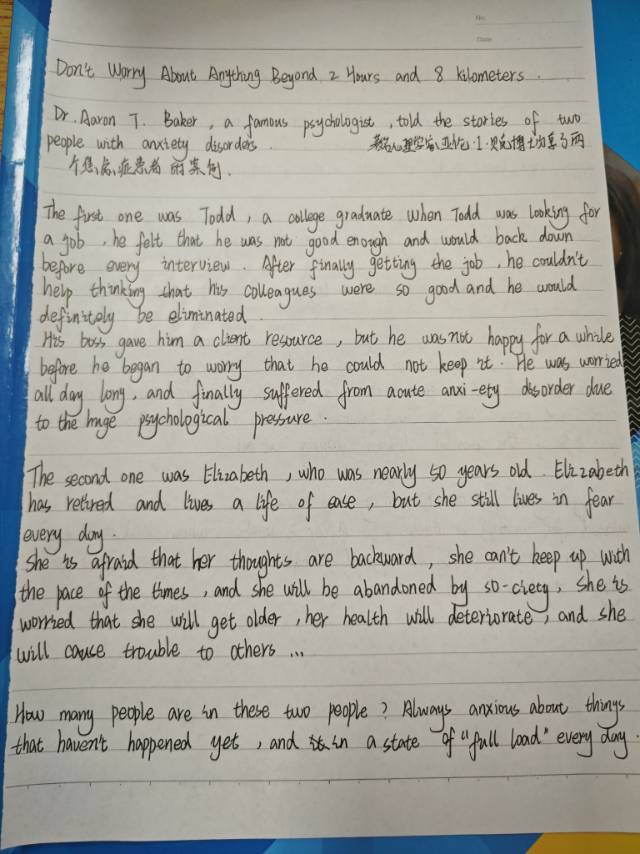 No.
Date
Don't Worry About Anything Beyond 2 Hours and 8 kilometers.
Dr. Aaron T. Baker, a famous psychologist, told the stories of two
people with anxiety disorders. 著名心理学家亚伦·T·贝克博士写了两
个焦虑症患者的案例.
The first one was Todd, a college graduate when Todd was looking for
a job, he felt that he was not good enough and would back down
before every interview. After finally getting the job, he couldn't
help thinking that his colleagues were so good and he would
definitely be eliminated.
His boss gave him a client resource, but he was not happy for a while
before he began to worry that he could not keep it. He was worried
all day long, and finally suffered from acute anxi-ety disorder due
to the huge psychological pressure.
The second one was Elizabeth, who was nearly 50 years old. Elizabeth
has retired and lives a life of ease, but she still lives in fear
every day.
She is afraid that her thoughts are backward, she can't keep up with
the pace of the times, and she will be abandoned by so-ciety, She is
worried that she will get older, her health will deteriorate, and she
will cause trouble to others ...
How many people are in these two people? Always anxious about things
that haven't happened yet, and in a state of "full load" every day.